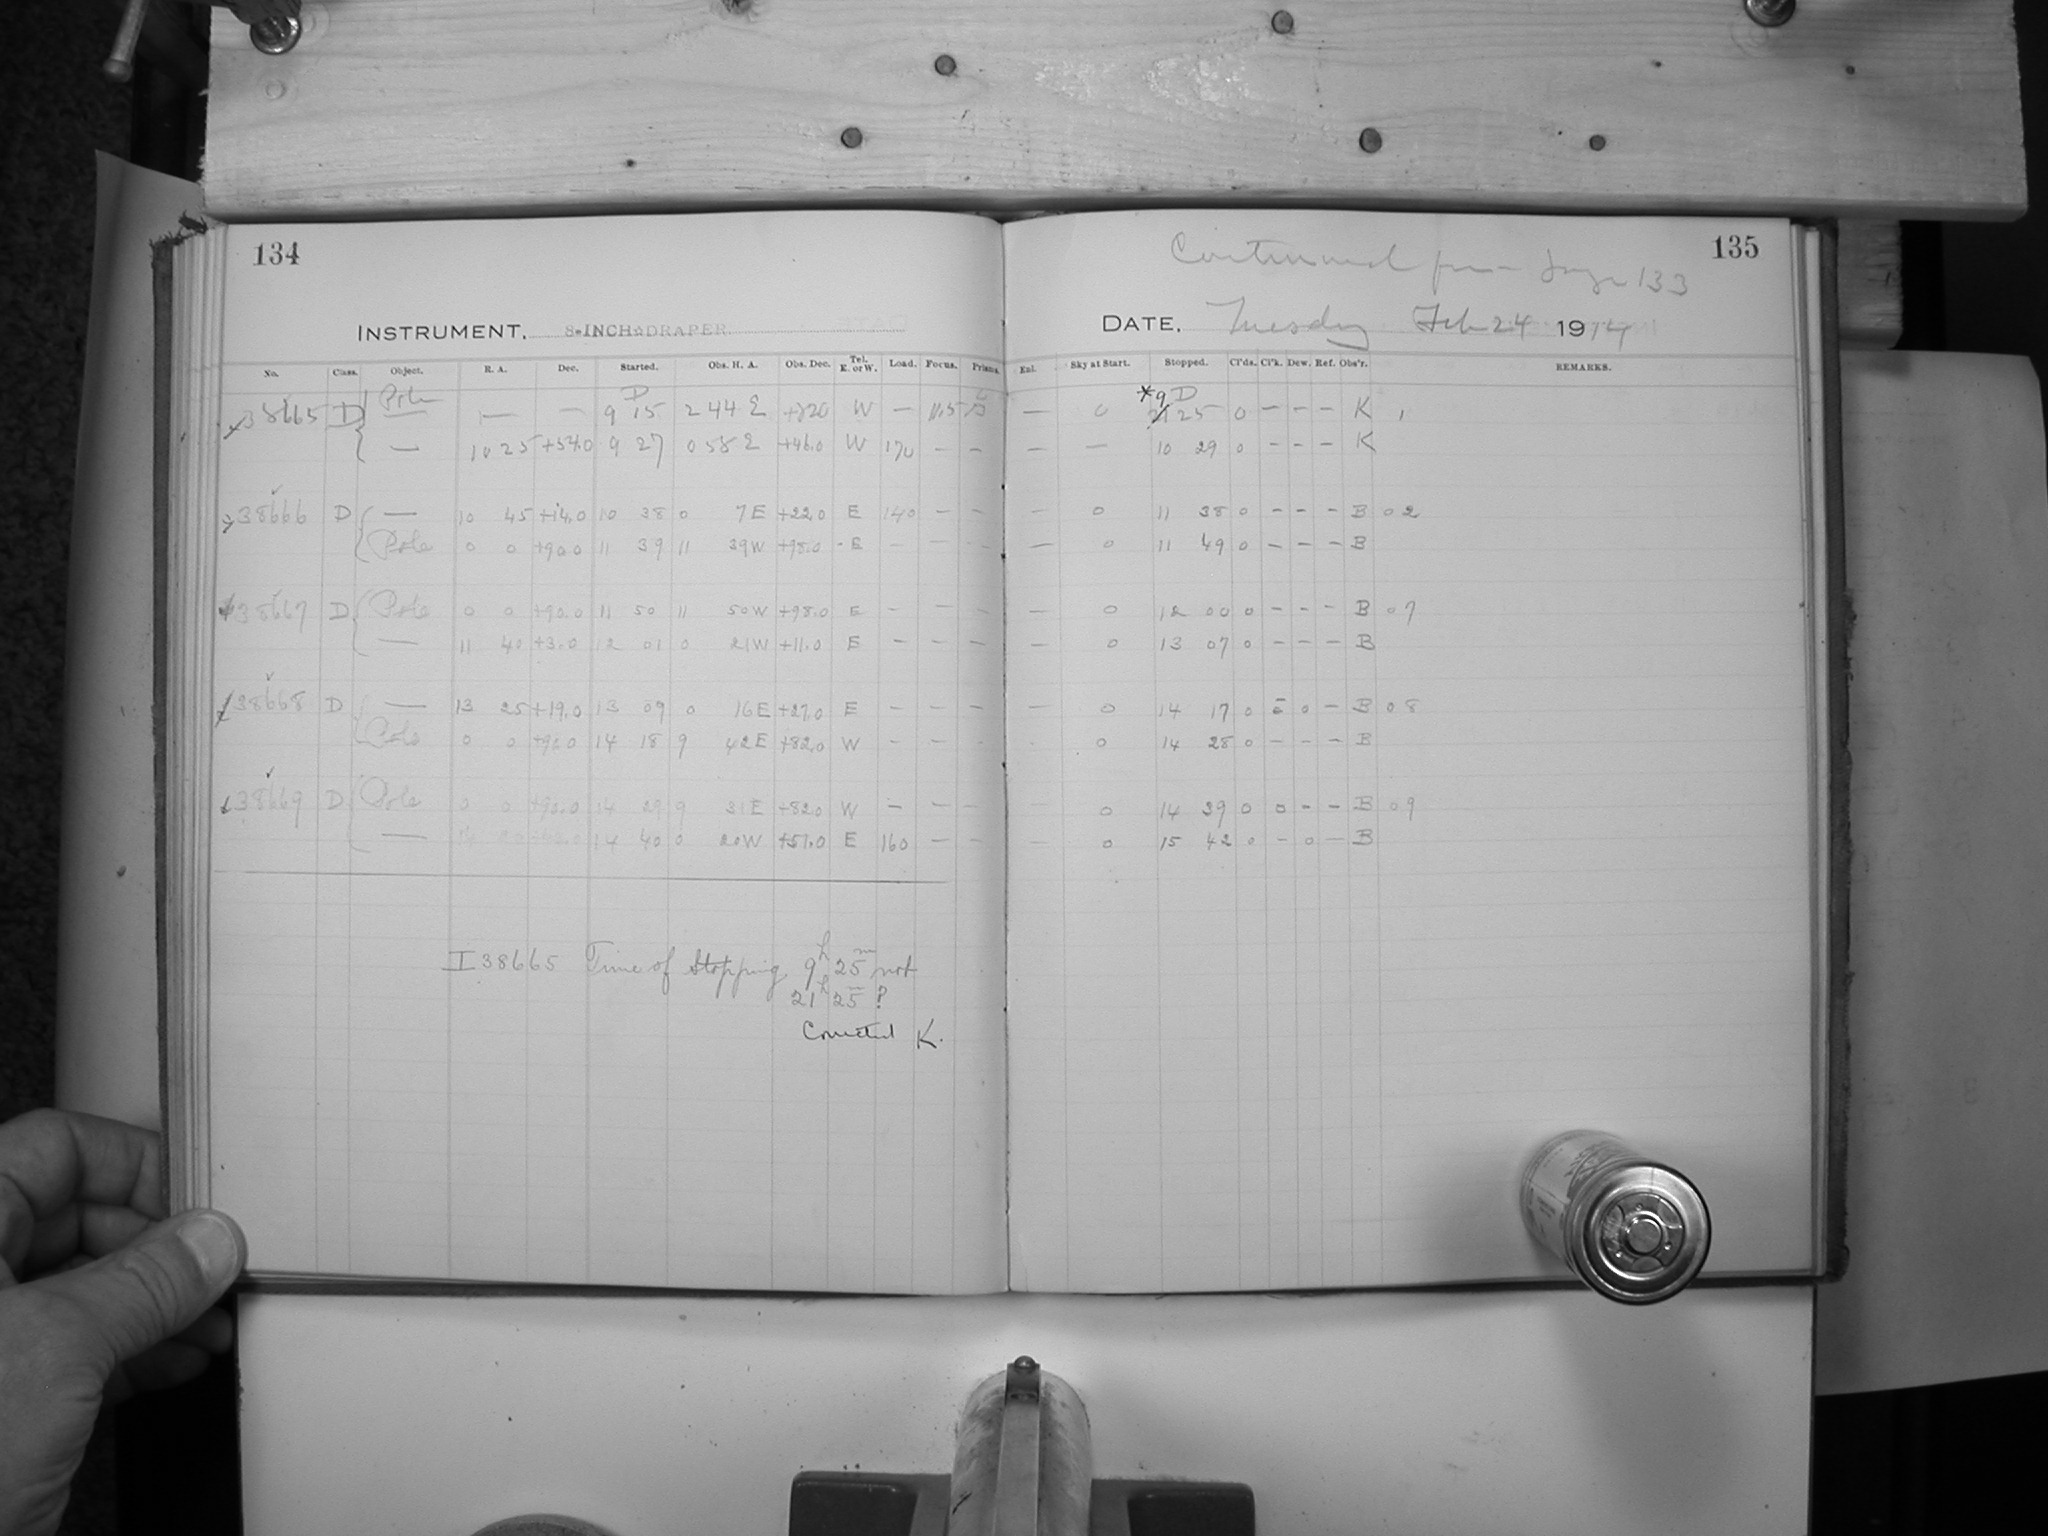 134
INSTRUMENT, 8-INCH DRAPER
No. Class. Object. R. A. Dec. Started. Obs. H. A. Obs. Dec. Tel. E. or W. Load. Focus. Prisms.
38665 D Pole — — 9 15 2 44 E W —
— 10 25 9 27 0 58 E +46.0 W 170 – –
38666 D — 10 45 +14.0 10 38 0 7 E +22.0 E 140 – –
Pole 0 0 +90.0 11 39 11 39 W +98.0 E – – –
38667 D Pole 0 0 +90.0 11 50 11 50 W +98.0 E – – –
— 11 40 +3.0 12 01 0 21 W +11.0 E – – –
38668 D — 13 25 +19.0 13 09 0 16 E +27.0 E – – –
Pole 0 0 +90.0 14 18 9 42 E +82.0 W – –
38669 D Pole 0 0 +90.0 14 29 9 31 E +82.0 W – – –
— 14 40 0 20 W +51.0 E 160 – –
I 38665 Time of Stopping 9h 25m not
21h 25m ?
Corrected K.
135
Continued from page 133
DATE, Tuesday Feb 24 1914
Enl. Sky at Start. Stopped. Cl'ds. Cl'k. Dew. Ref. Obs'r. REMARKS.
* 9 D
— 0 21 25 0 – – – K
— — 10 29 0 – – – K
— 0 11 38 0 – – – B 02
— 0 11 49 0 – – – B
— 0 12 00 0 – – – B 07
— 0 13 07 0 – – – B
— 0 14 17 0 0 – B 08
0 14 28 0 – – – B
— 0 14 39 0 0 – – B 09
— 0 15 42 0 – 0 – B